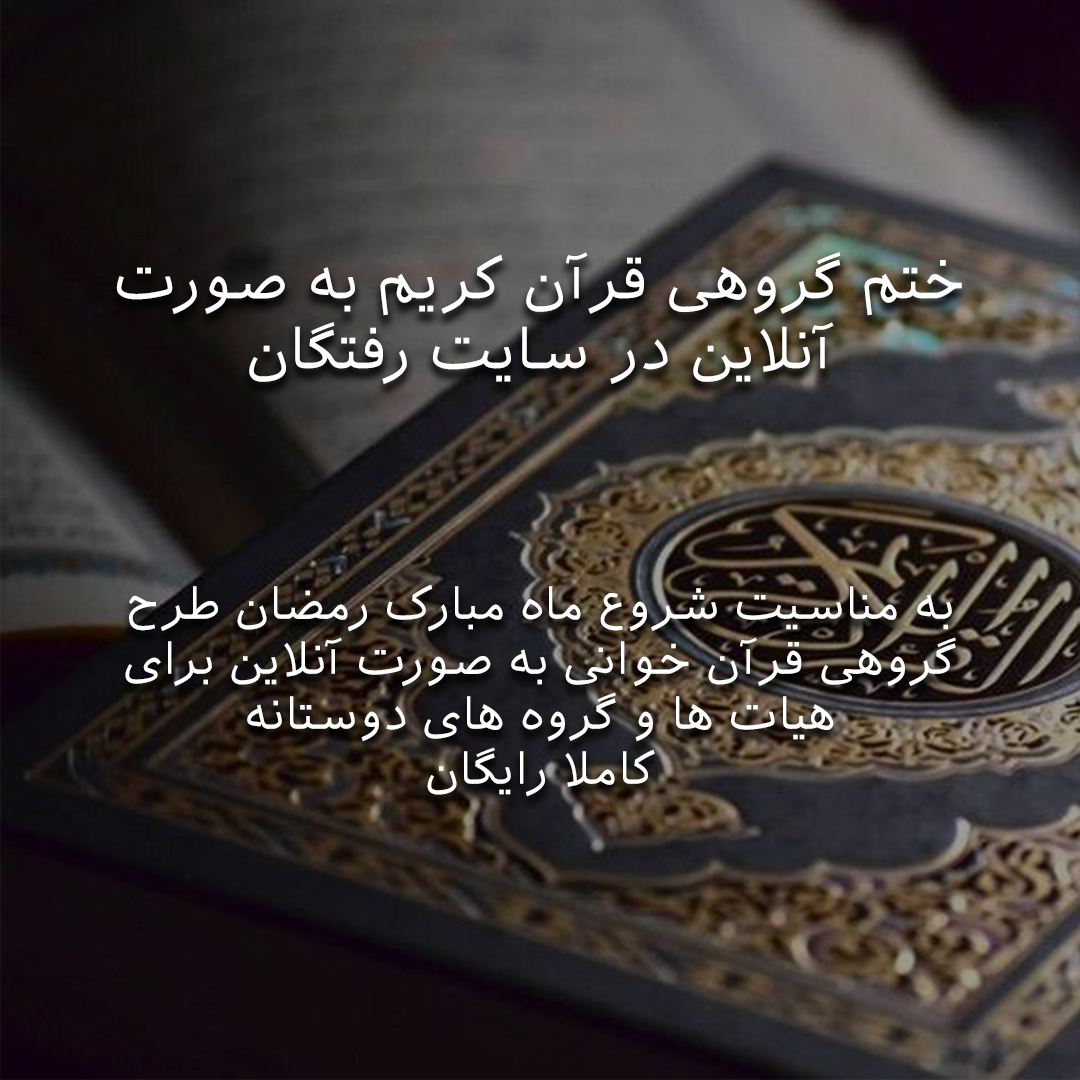 ختم گروهی قرآن کریم به صورت
آنلاین در سایت رفتگان
به مناسیت شروع ماه مبارک رمضان طرح
گروهی قرآن خوانی به صورت آنلاین برای
هیات ها و گروه های دوستانه
کاملا رایگان
القرآن الكريم